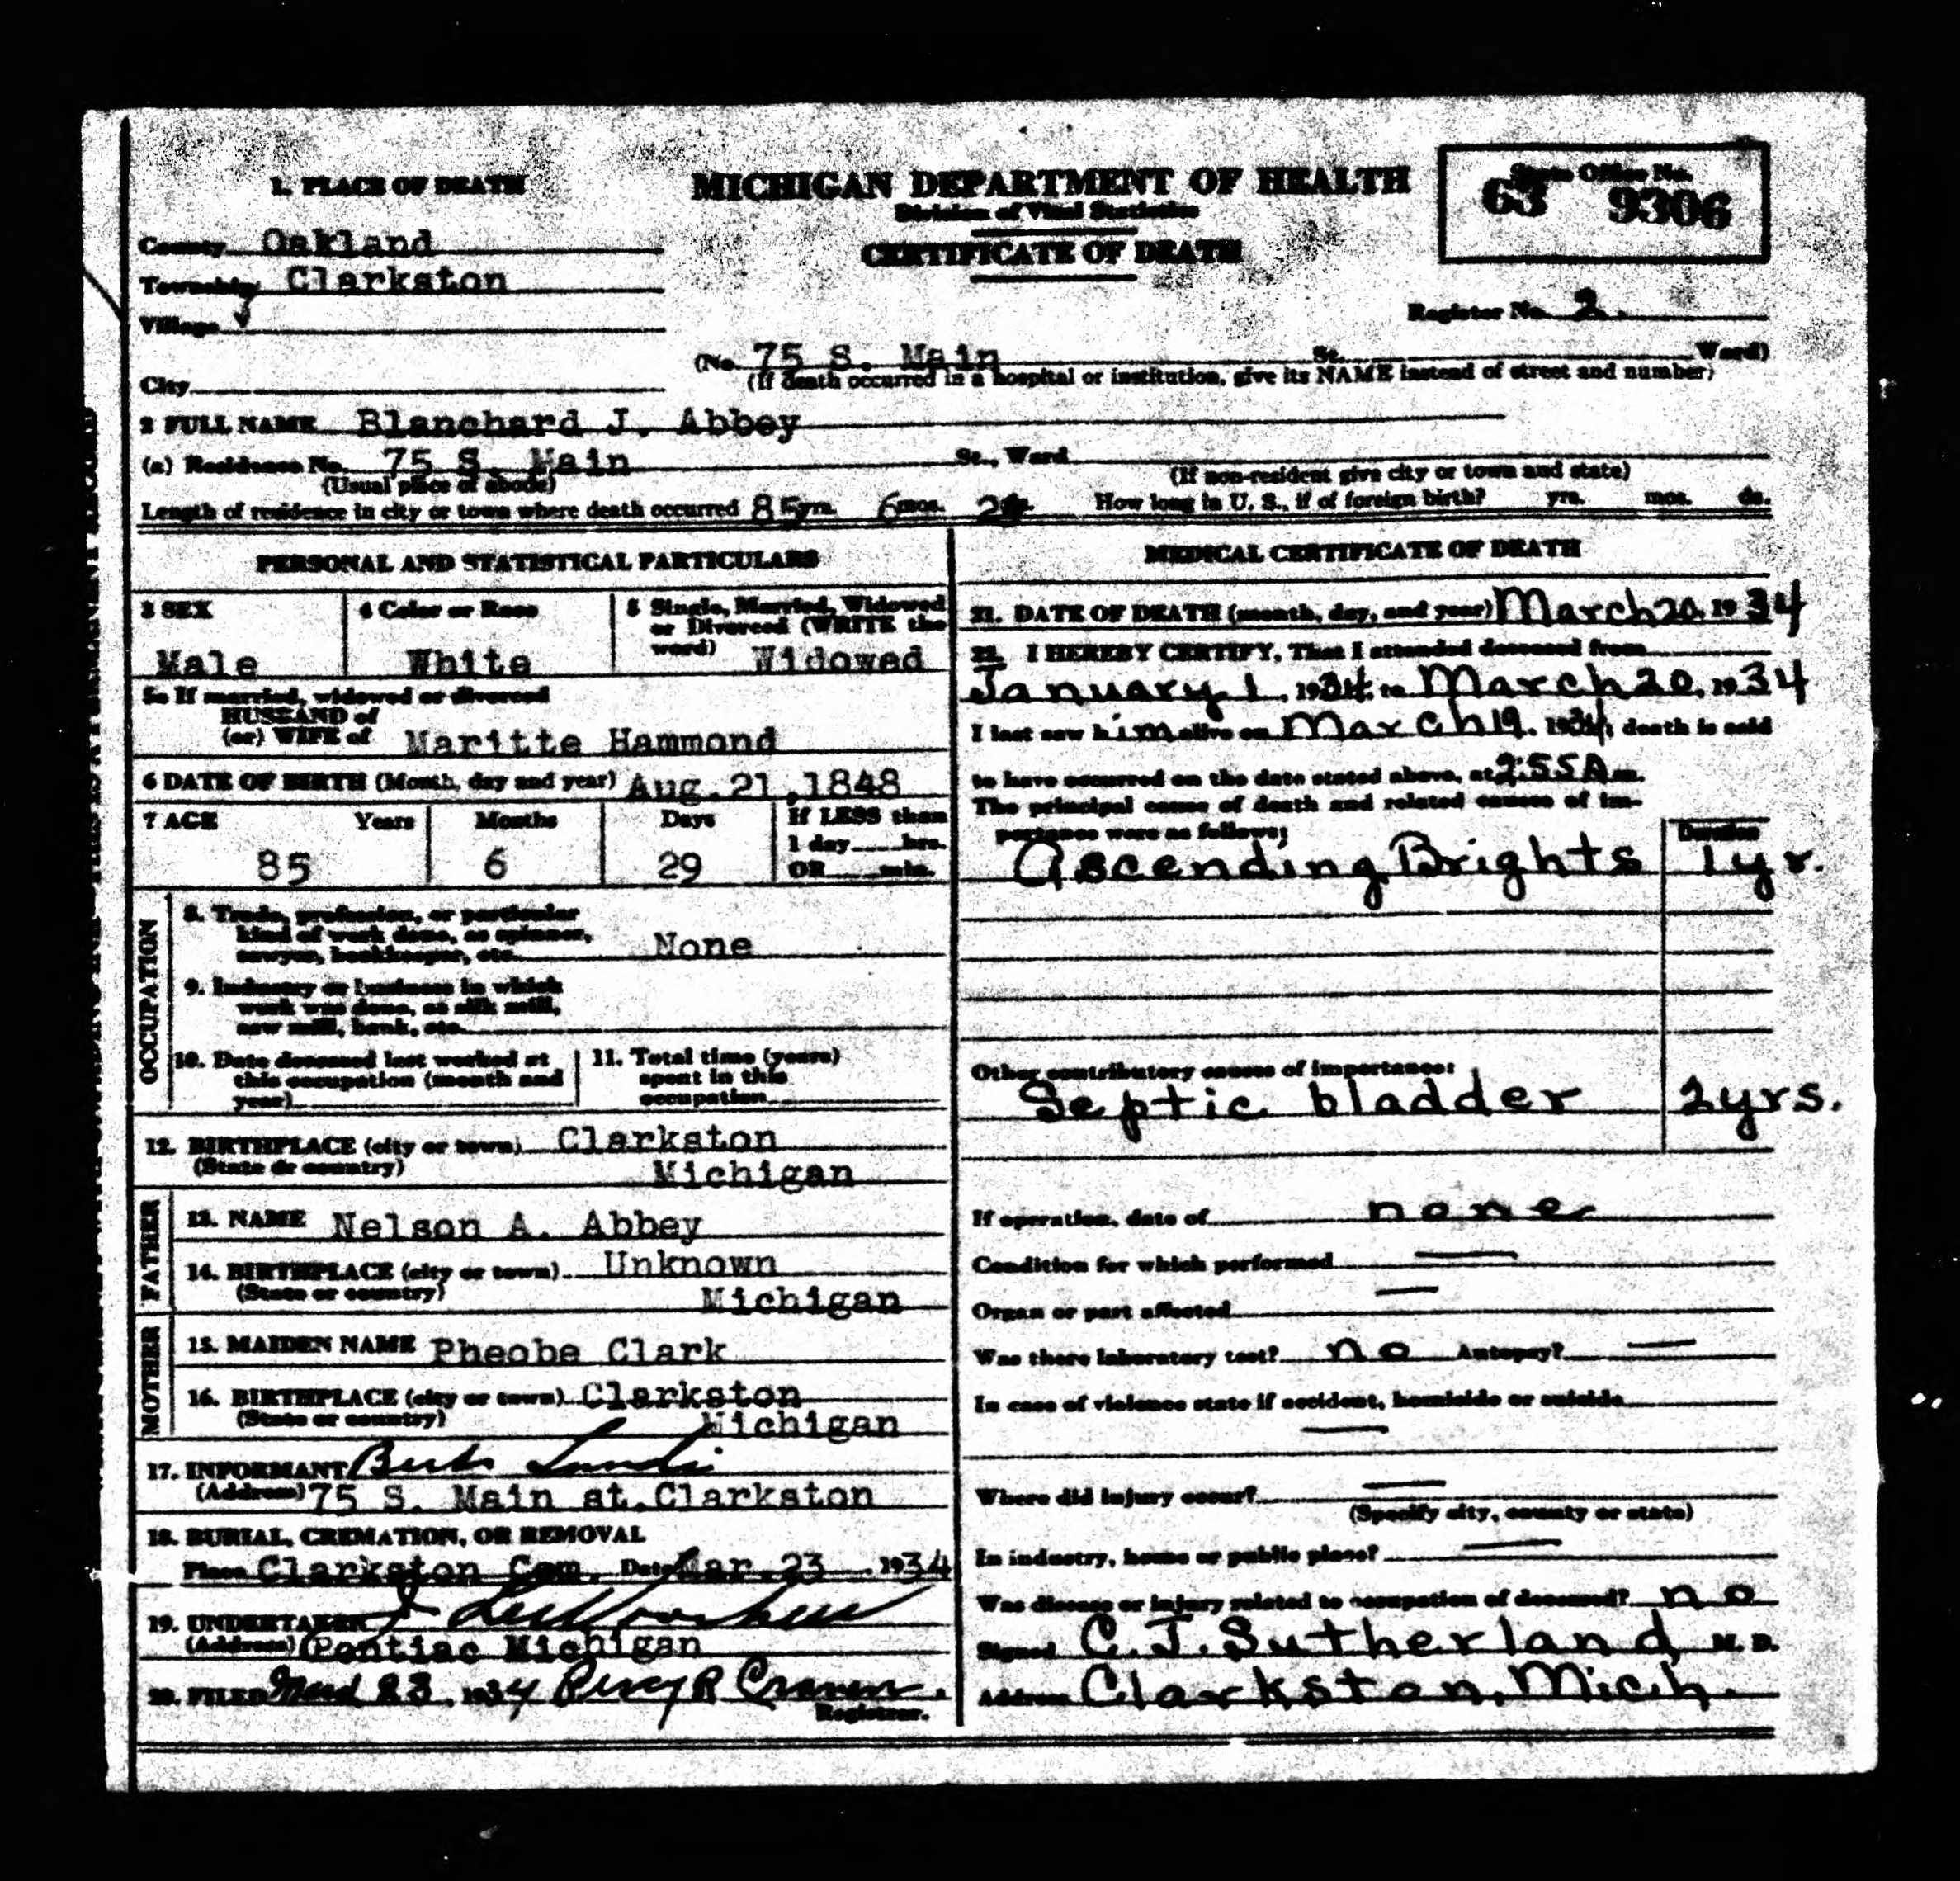 1. PLACE OF DEATH
MICHIGAN DEPARTMENT OF HEALTH
Division of Vital Statistics
CERTIFICATE OF DEATH
State Office No.
63 9306
County Oakland
Township Clarkston
Village
City
Register No. 2.
(No. 75 S. Main St. Ward)
(If death occurred in a hospital or institution, give its NAME instead of street and number)
2 FULL NAME Blanchard J. Abbey
(a) Residence No. 75 S. Main St., Ward
(Usual place of abode)
(If non-resident give city or town and state)
Length of residence in city or town where death occurred 85 yrs. 6 mos. How long in U. S., if of foreign birth? yrs. mos. ds.
PERSONAL AND STATISTICAL PARTICULARS
3 SEX
Male
4 Color or Race
White
5 Single, Married, Widowed
or Divorced (WRITE the
word) Widowed
5a If married, widowed or divorced
HUSBAND of
(or) WIFE of Maritte Hammond
6 DATE OF BIRTH (Month, day and year) Aug. 21, 1848
7 AGE Years Months Days
85 6 29
If LESS than
1 day hrs.
OR min.
OCCUPATION
8. Trade, profession, or particular
kind of work done, as spinner,
sawyer, bookkeeper, etc. None
9. Industry or business in which
work was done, as silk mill,
saw mill, bank, etc.
10. Date deceased last worked at
this occupation (month and
year)
11. Total time (years)
spent in this
occupation
12. BIRTHPLACE (city or town) Clarkston
(State or country) Michigan
FATHER
13. NAME Nelson A. Abbey
14. BIRTHPLACE (city or town) Unknown
(State or country) Michigan
MOTHER
15. MAIDEN NAME Pheobe Clark
16. BIRTHPLACE (city or town) Clarkston
(State or country) Michigan
17. INFORMANT
(Address) 75 S. Main st. Clarkston
18. BURIAL, CREMATION, OR REMOVAL
Place Clarkston Cem. Date Mar. 23 1934
19. UNDERTAKER
(Address) Pontiac Michigan
20. FILED 23, 1934 Percy R
Registrar.
MEDICAL CERTIFICATE OF DEATH
21. DATE OF DEATH (month, day, and year) March 20, 1934
22. I HEREBY CERTIFY, That I attended deceased from
January 1, 1934 to March 20, 1934
I last saw him alive on March 19, 1934; death is said
to have occurred on the date stated above, at 2:55 A m.
The principal cause of death and related causes of im-
portance were as follows:
Duration
Ascending Brights 1 yr.
Other contributory causes of importance:
Septic bladder 2 yrs.
If operation, date of none
Condition for which performed —
Organ or part affected —
Was there laboratory test? no Autopsy? —
In case of violence state if accident, homicide or suicide
—
Where did injury occur? —
(Specify city, county or state)
In industry, home or public place? —
Was disease or injury related to occupation of deceased? no
Signed C. J. Sutherland M. D.
Address Clarkston, Mich.